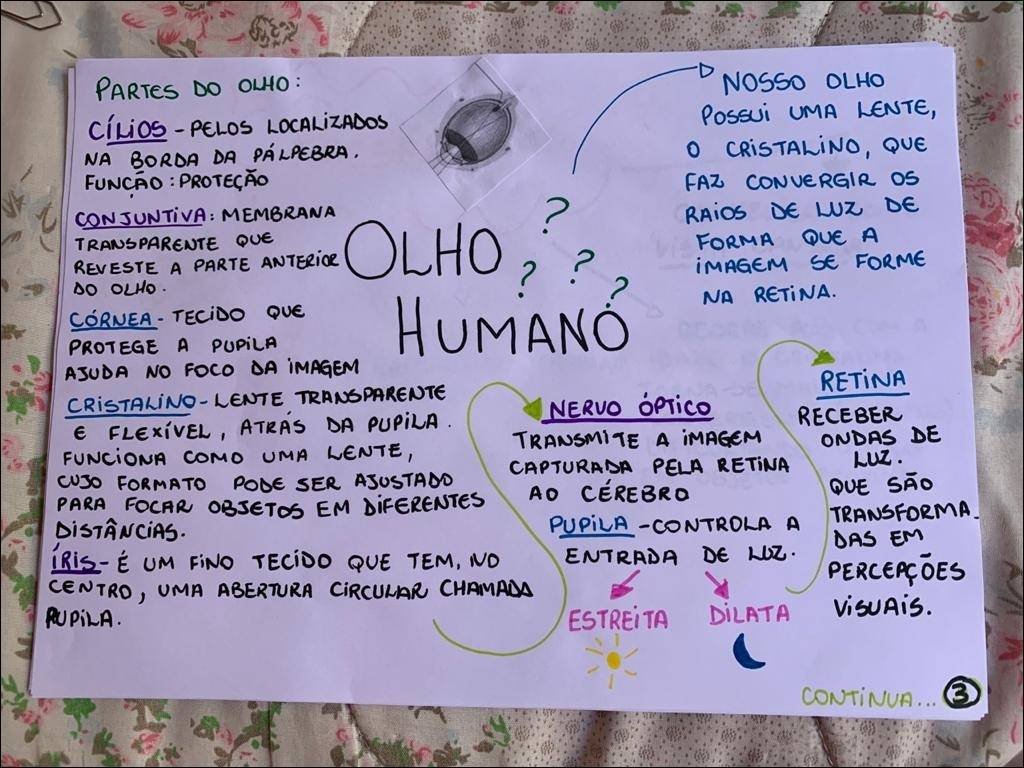 PARTES DO OLHO:
CÍLIOS - PELOS LOCALIZADOS
NA BORDA DA PÁLPEBRA.
FUNÇÃO: PROTEÇÃO
CONJUNTIVA: MEMBRANA
TRANSPARENTE QUE
REVESTE A PARTE ANTERIOR
DO OLHO.
CÓRNEA - TECIDO QUE
PROTEGE A PUPILA
AJUDA NO FOCO DA IMAGEM
CRISTALINO - LENTE TRANSPARENTE
E FLEXÍVEL, ATRÁS DA PUPILA.
FUNCIONA COMO UMA LENTE,
CUJO FORMATO PODE SER AJUSTADO
PARA FOCAR OBJETOS EM DIFERENTES
DISTÂNCIAS.
ÍRIS - É UM FINO TECIDO QUE TEM, NO
CENTRO, UMA ABERTURA CIRCULAR CHAMADA
PUPILA.
OLHO
HUMANO
? ? ? ?
NOSSO OLHO
POSSUI UMA LENTE,
O CRISTALINO, QUE
FAZ CONVERGIR OS
RAIOS DE LUZ DE
FORMA QUE A
IMAGEM SE FORME
NA RETINA.
NERVO ÓPTICO
TRANSMITE A IMAGEM
CAPTURADA PELA RETINA
AO CÉREBRO
PUPILA - CONTROLA A
ENTRADA DE LUZ.
ESTREITA DILATA
RETINA
RECEBER
ONDAS DE
LUZ.
QUE SÃO
TRANSFORMA
DAS EM
PERCEPÇÕES
VISUAIS.
CONTINUA... 3